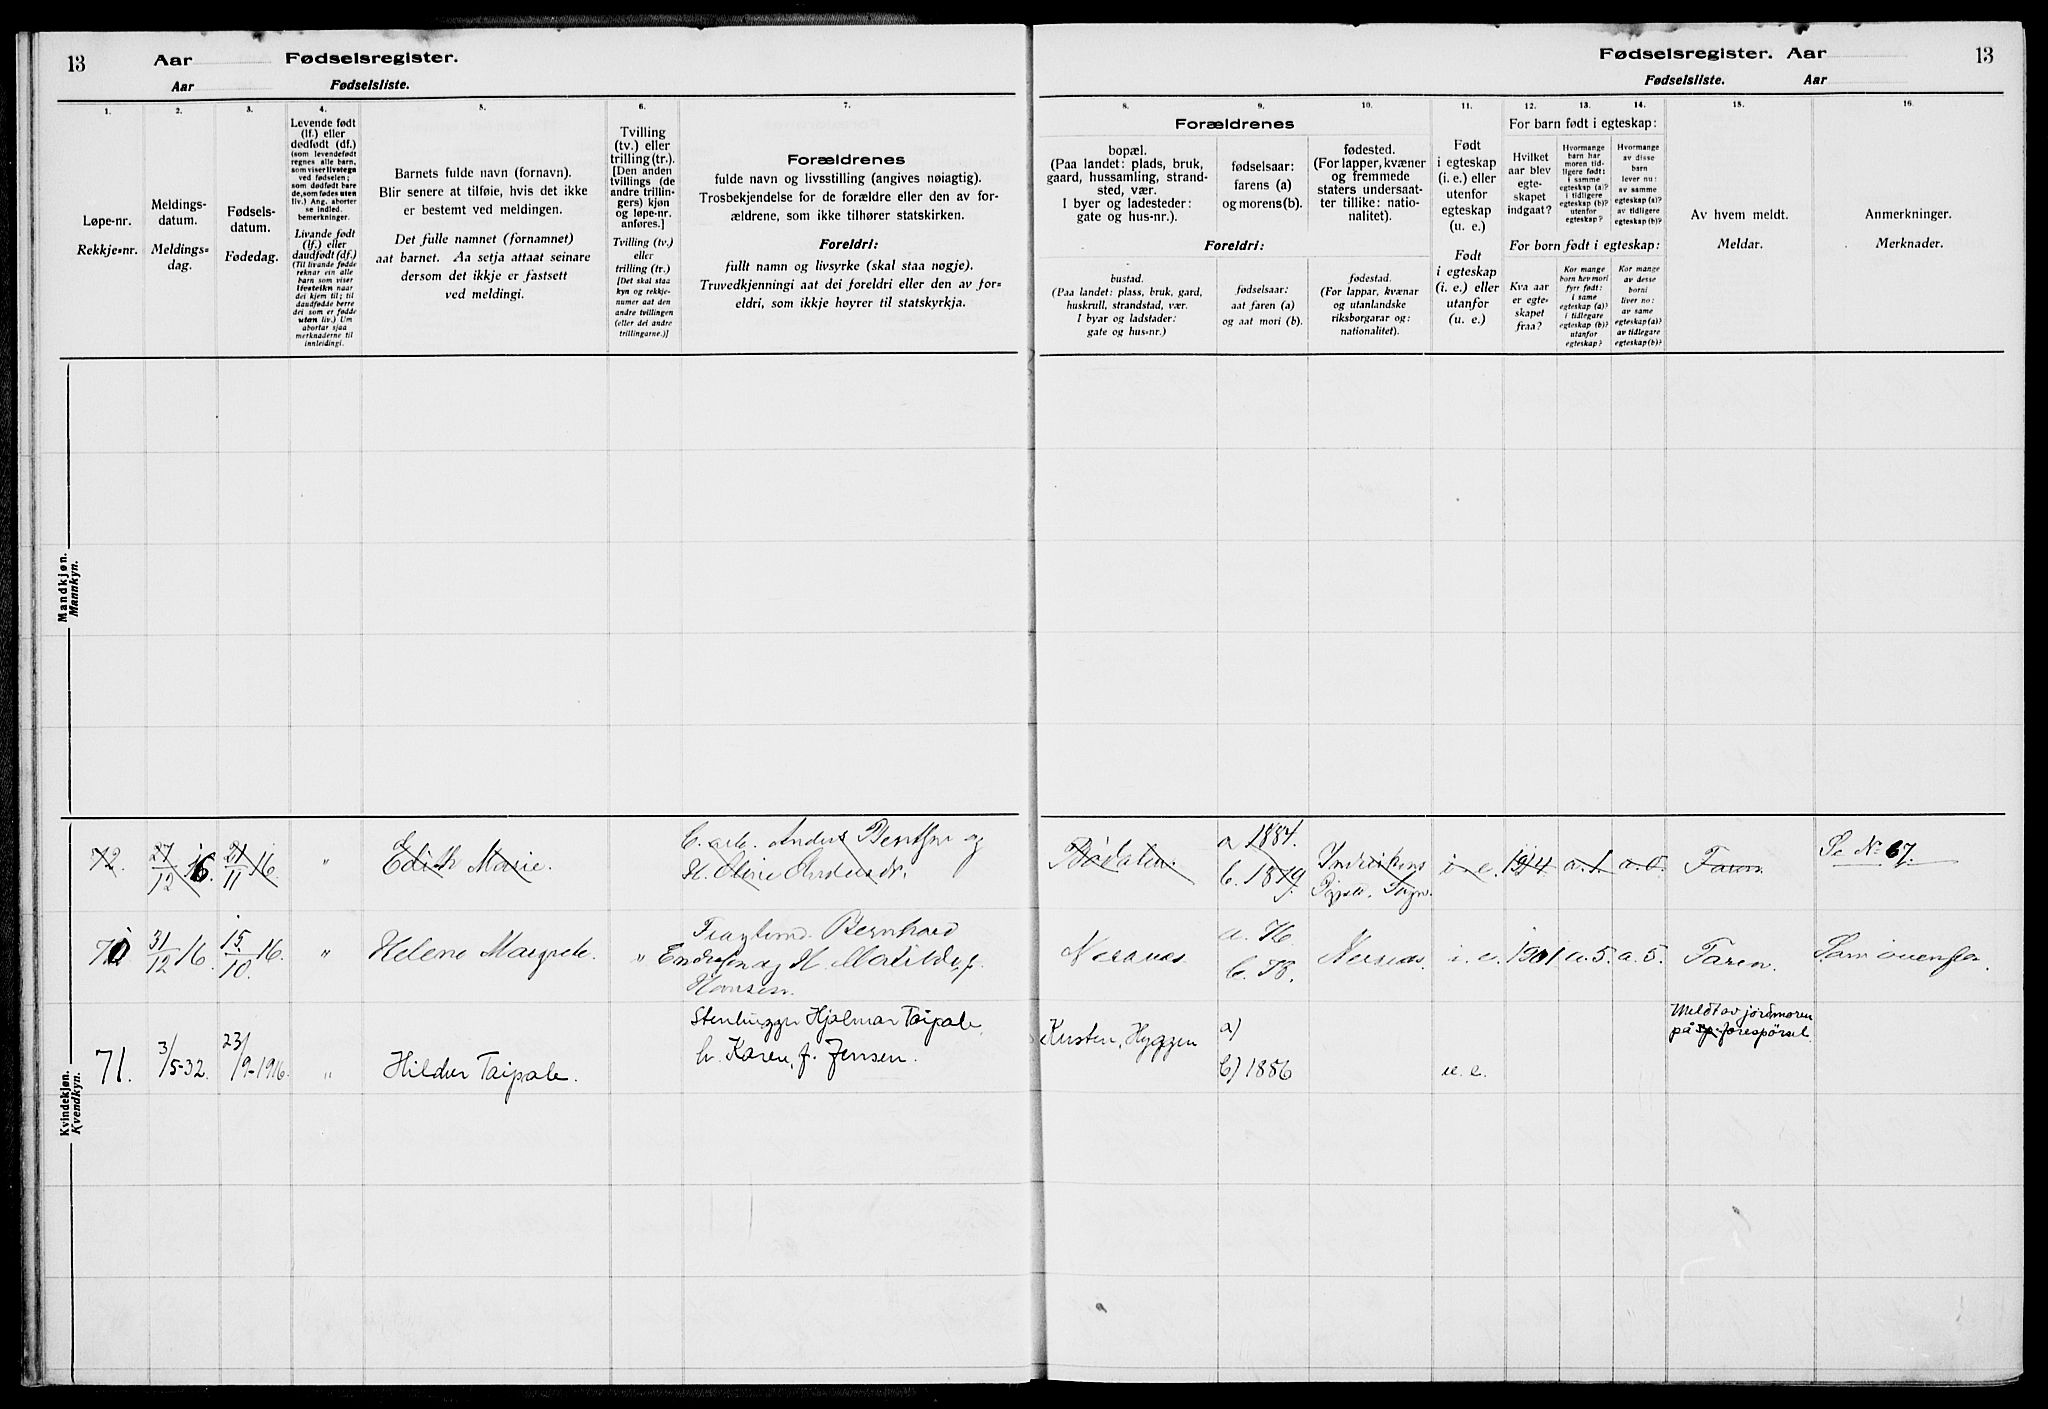 13 Aar Fødselsregister.
Aar Fødselsliste.
Fødselsregister. Aar 13
Fødselsliste. Aar
1. 2. 3. 4. 5. 6. 7.
Løpe-nr.
Rekkje=nr.
Meldings-
datum.
Meldings=
dag.
Fødsels-
datum.
Fødedag.
Levende født
(lf.) eller
dødfødt (df.)
(som levendefødt
regnes alle barn,
som viser livstegn
ved fødselen;
som dødfødt bare
de, som fødes uten
liv.) Ang. aborter
se indled.
bemerkninger.
Livande født
(lf.) eller
daudfødt (df.)
(Til livande fødde
reknar ein alle
barn som viser
lifsteikn naar
dei kjem til; til
daudfødde berre
dei som er fødde
utan liv.) Um
abortar sjaa
merknaderne til
innleidingi.
Barnets fulde navn (fornavn).
Blir senere at tilføie, hvis det ikke
er bestemt ved meldingen.
Det fulle namnet (fornamnet)
aat barnet. Aa setja attaat seinare
dersom det ikkje er fastsett
ved meldingi.
Tvilling
(tv.) eller
trilling (tr.).
[Den anden
tvillings (de
andre trillin-
gers) kjøn
og løpe-nr.
anføres.]
Tvilling (tv.)
eller
trilling (tr.)
[Det skal staa
kyn og rekkje-
numer aat den
andre tvillingen
(eller dei andre
trillingarne.)]
Forældrenes
fulde navn og livsstilling (angives nøiagtig).
Trosbekjendelse for de forældre eller den av for-
ældrene, som ikke tilhører statskirken.
Foreldri:
fullt namn og livsyrke (skal staa nøgje).
Truvedkjenningi aat dei foreldri eller den av for=
eldri, som ikkje høyrer til statskyrkja.
8. 9. 10. 11. 12. 13. 14. 15. 16.
Forældrenes
bopæl.
(Paa landet: plads, bruk,
gaard, hussamling, strand-
sted, vær.
I byer og ladesteder:
gate og hus-nr.).
fødselsaar:
farens (a)
og morens (b).
fødested.
(For lapper, kvæner
og fremmede
staters undersaat-
ter tillike: natio-
nalitet).
Foreldri:
bustad.
(Paa landet: plass, bruk, gard,
huskrull, strandstad, vær.
I byar og ladstader:
gate og hus=nr.)
fødselsaar:
aat faren (a)
og aat mori (b).
fødestad.
(For lappar, kvænar
og utanlandske
riksborgarar og:
nationalitet).
Født
i egteskap
(i. e.) eller
utenfor
egteskap
(u. e.)
Født
i egteskap
(i. e.) eller
utanfor
egteskap
(u. e.)
For barn født i egteskap:
Hvilket
aar blev
egte-
skapet
indgaat?
Hvormange
barn har
moren tid-
ligere født:
i samme
egteskap (a)?
i tidligere
egteskap (b)?
utenfor
egteskap?
Hvormange
av disse
barn
lever nu:
av samme
egteskap (a)?
av tidligere
egteskap (b)?
For born født i egteskap:
Kva aar
er egte-
skapet
fraa?
Kor mange
born hev mori
fyrr født:
i same
egteskap (a)?
i tidlegare
egteskap (b)?
utanfor
egteskap?
Kor mange
av desse
borni
liver no:
av same
egteskap (a)?
av tidlegare
egteskap (b)?
Av hvem meldt.
Meldar.
Anmerkninger.
Merknader.
Mandkjøn.
Mannkyn.
Kvindekjøn.
Kvendkyn.
72. 27/12 16. 21/11 16. " Edith Marie. Anders Berntsen og
H. Oline Andersdr.
a 1884.
b. 1879. i. e. 1914 a. 1. a. 0. Faren Se No 67.
70 31/12 16. 15/10 16. " Helene Margrete. " Bernhard
Endresen og H. Matilde f.
Hansen.
Nersnes a. 76.
b. 78. Nersnes i. e. 1901 a. 5. a. 5. Faren. Som ovenfor.
71. 3/5-32. 23/9-1916. " Hildur Taipale. Stenhugger Hjalmar Taipale,
h. Karen, f. Jensen.
Kirsten, Hyggen a)
b) 1886 u. e. Meldt av jordmoren
på forespørsel.